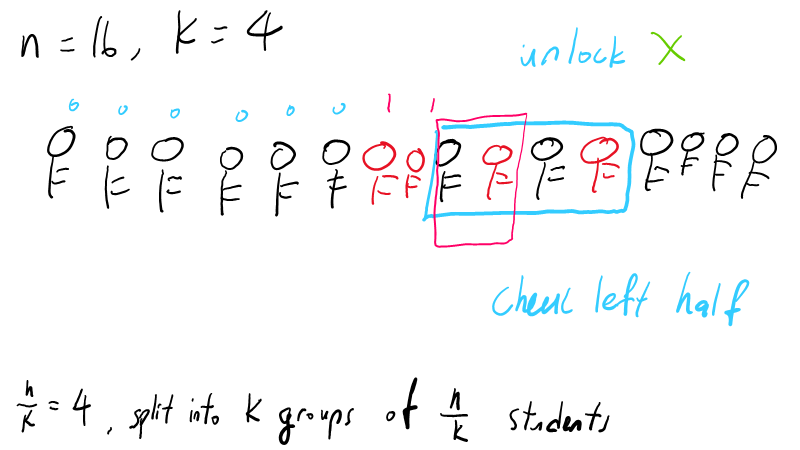 n = 16, k = 4
unlock X
0 0 0 0 0 0 1 1
check left half
n/k = 4, split into k groups of n/k students